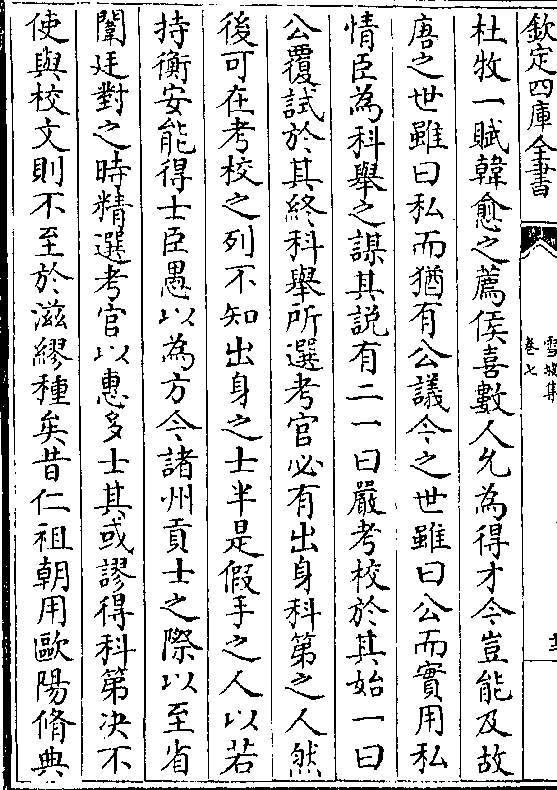 欽定四庫全書
雪坡集
卷七
杜牧一賦韓愈之薦侯喜數人允為得才今豈能及故
唐之世雖曰私而猶有公議今之世雖曰公而實用私
情臣為科舉之謀其説有二一曰嚴考校於其始一曰
公覆試於其終科舉所選考官必有出身科第之人然
後可在考校之列不知出身之士半是假手之人以若
持衡安能得士臣愚以為方今諸州貢士之際以至省
闈廷對之時精選考官以惠多士其或謬得科第決不
使與校文則不至於滋繆種矣昔仁祖朝用歐陽脩典